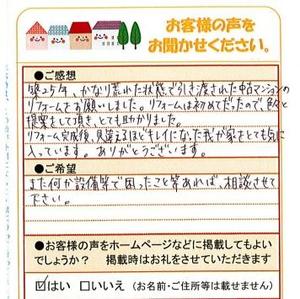 お客様の声を
お聞かせください。
●ご感想
築25年、かなり荒れた状態で引き渡された中古マンションの
リフォームをお願いしました。リフォームは初めてだったので、色々と
提案して頂き、とても助かりました。
リフォーム完成後、見違えるほどキレイになった我が家をとても気に
入っています。ありがとうございます。
●ご希望
また何か設備等で困ったこと等あれば、相談させて
下さい。
●お客様の声をホームページなどに掲載してもよい
でしょうか？ 掲載時はお礼をさせていただきます
☑はい □いいえ（お名前・ご住所等は載せません）